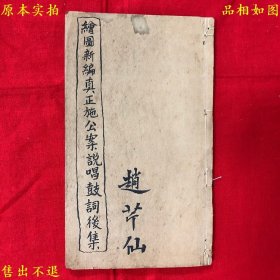 原本实拍
品相如图
繪圖新編真正施公案說唱鼓詞後集
趙芹仙
售出不退